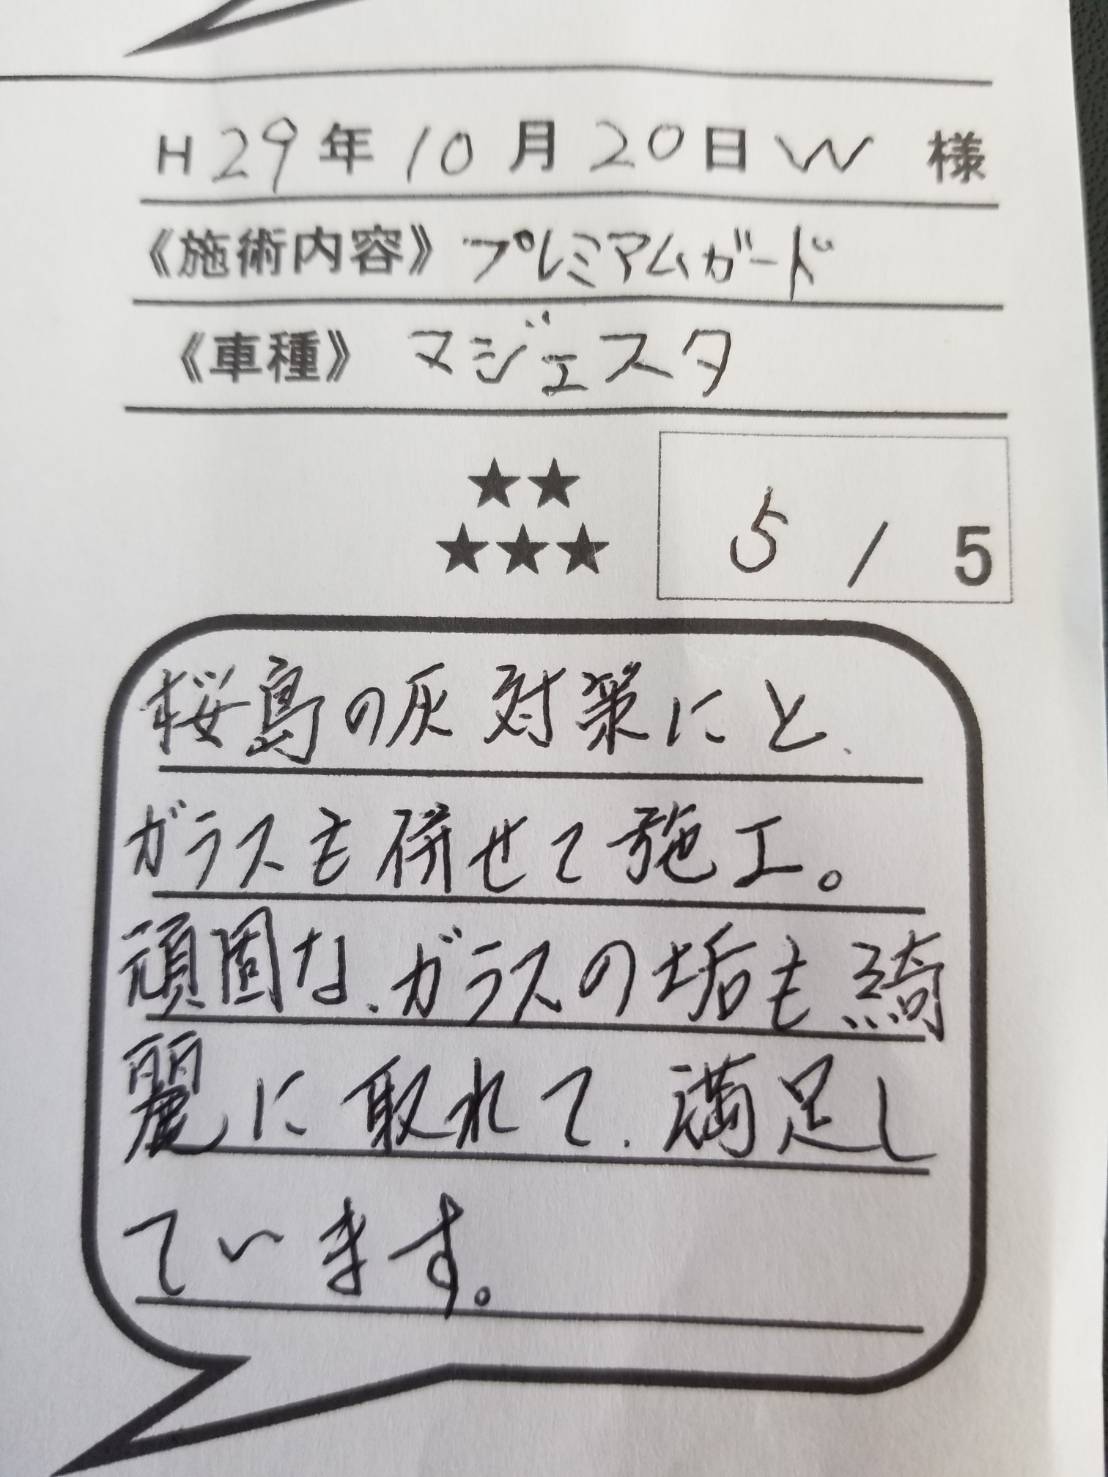 H29年10月20日 W 様
《施術内容》プレミアムガード
《車種》 マジェスタ
★★
★★★
5 / 5
桜島の灰対策にと、
ガラスも併せて施工。
頑固な、ガラスの垢も綺
麗に取れて、満足し
ています。